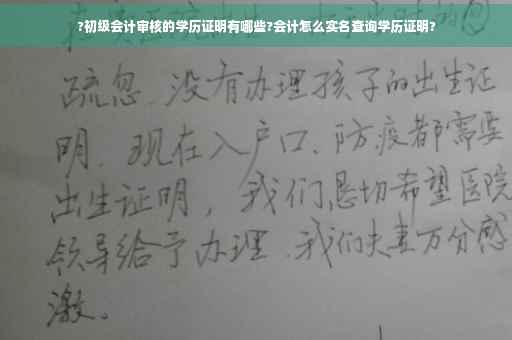 ?初级会计审核的学历证明有哪些?会计怎么实名查询学历证明?
疏忽、没有办理孩子的出生证
明、现在入户口、防疫都需要
出生证明，我们恳切希望医院
领导给予办理、我们夫妻万分感
激。